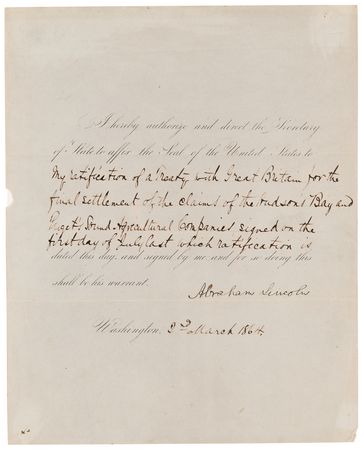 I hereby authorize and direct the Secretary
of State to affix the Seal of the United States to
My ratification of a Treaty with Great Britain for the
final settlement of the claims of the Hudson's Bay and
Puget's Sound Agricultural Companies signed on the
first day of July last which ratification is
dated this day, and signed by me and for so doing this
shall be his warrant.
Abraham Lincoln
Washington, 2d March 1864.